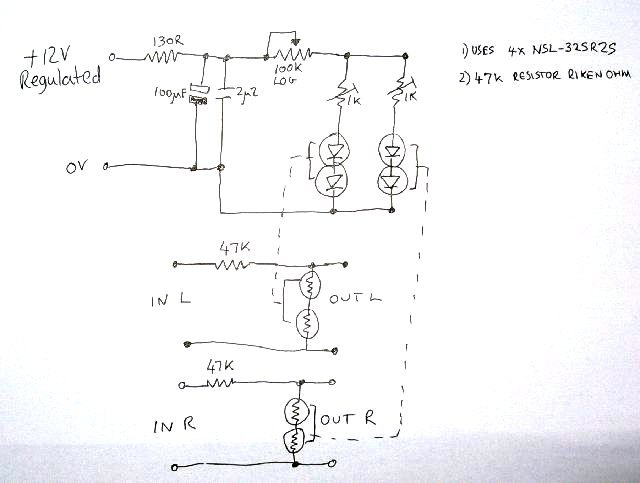 130R
+12V
Regulated
100K
LOG
100µF
2µ2
1K
1K
0V
1) USES 4x NSL-32SR2S
2) 47K RESISTOR RIKENOHM
47K
IN L
OUT L
47K
IN R
OUT R